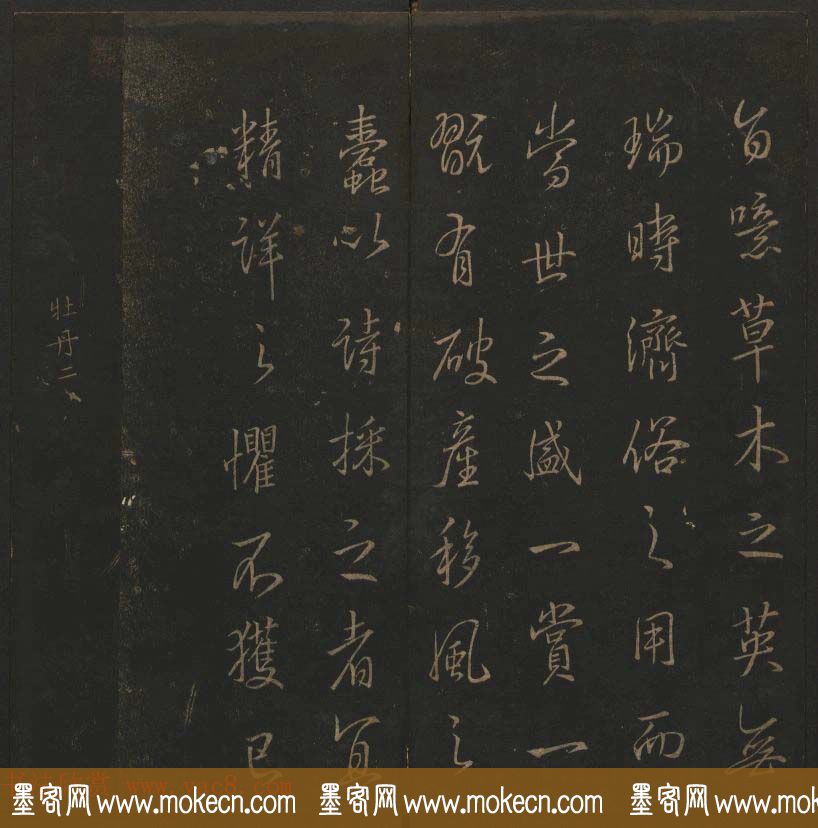 旨噫草木之英無
瑞時濟俗之用而
當世之盛一賞一
翫有破產移風之
蠹以詩採之者宜
精詳之懼不獲已
牡丹二
书法欣赏 www.yac8.com
墨客网 www.mokecn.com 墨客网 www.mokecn.com 墨客网 www.mokecn.com